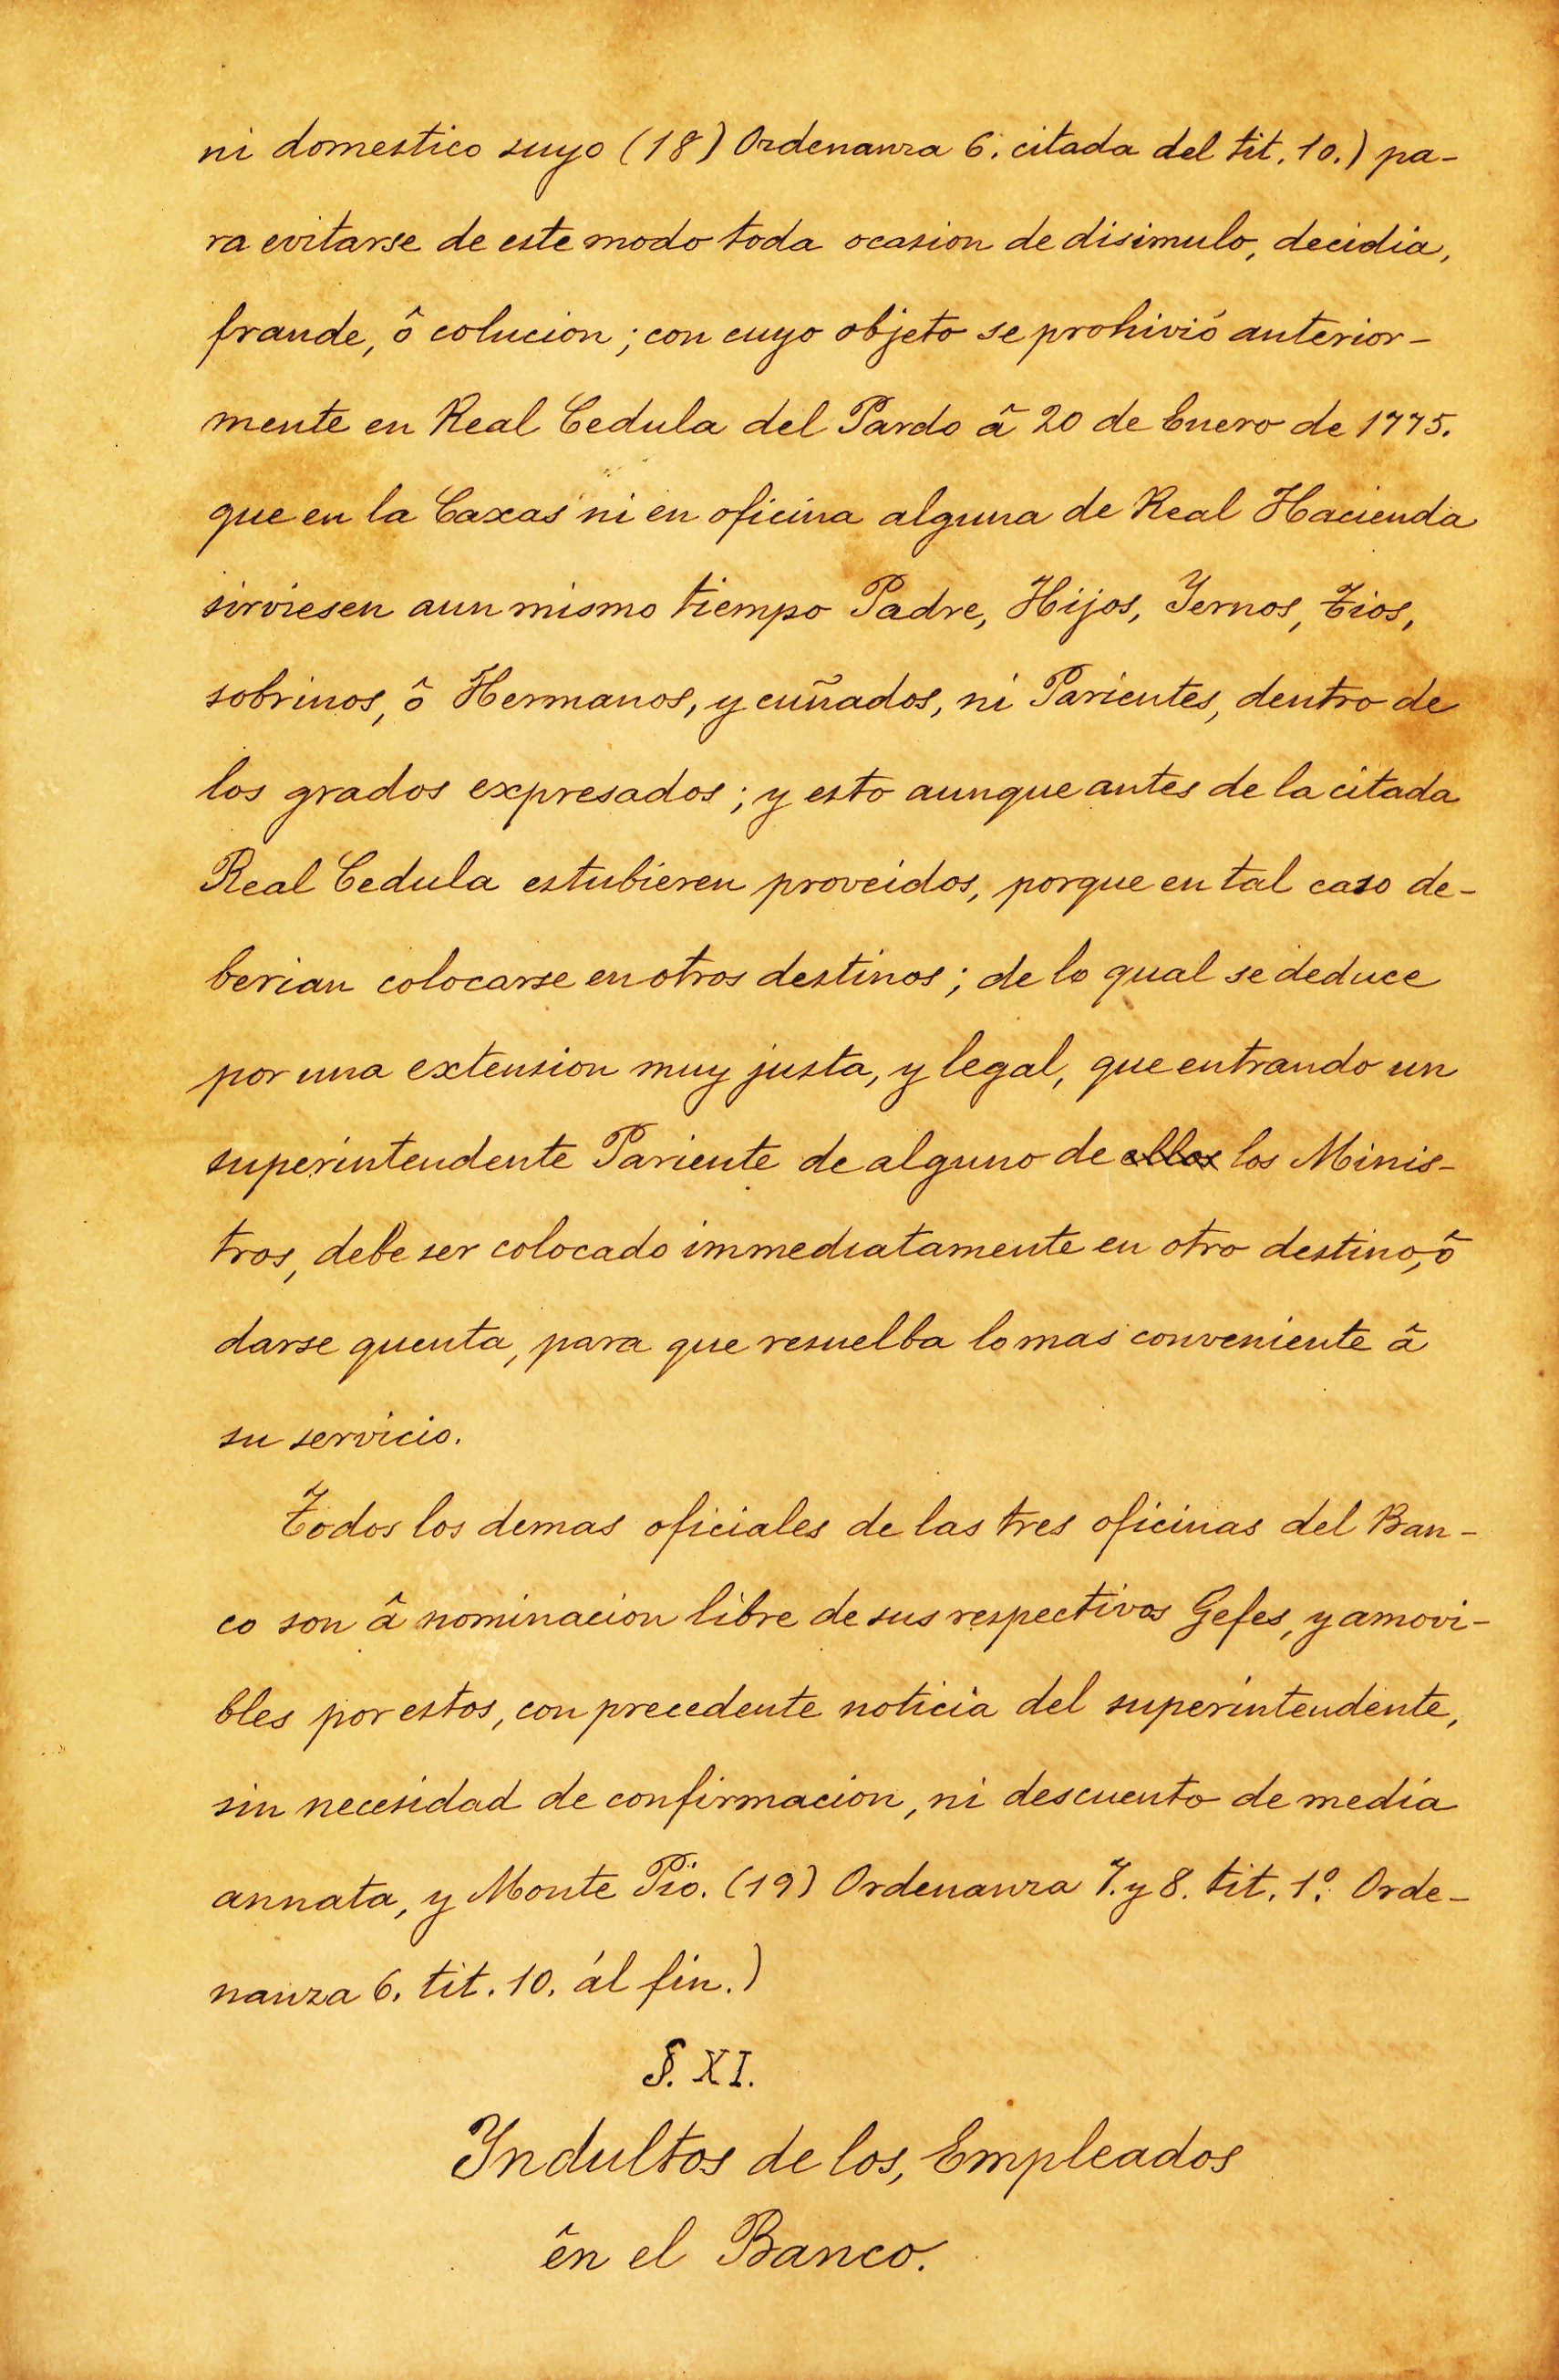 ni domestico suyo (18) Ordenanza 6. citada del tit. 10.) pa-
ra evitarse de este modo toda ocasion de disimulo, decidia,
fraude, ô colucion; con cuyo objeto se prohivió anterior-
mente en Real Cedula del Pardo â 20 de Enero de 1775.
que en la Caxas ni en oficina alguna de Real Hacienda
sirviesen aun mismo tiempo Padre, Hijos, Yernos, Tios,
sobrinos, ô Hermanos, y cuñados, ni Parientes, dentro de
los grados expresados; y esto aunque antes de la citada
Real Cedula estubieren proveidos, porque en tal caso de-
berian colocarse en otros destinos; de lo qual se deduce
por una extension muy justa, y legal, que entrando un
superintendente Pariente de alguno de ellos los Minis-
tros, debe ser colocado immediatamente en otro destino, ô
darse quenta, para que resuelba lo mas conveniente â
su servicio.
Todos los demas oficiales de las tres oficinas del Ban-
co son â nominacion libre de sus respectivos Gefes, y amovi-
bles por estos, con precedente noticia del superintendente,
sin necesidad de confirmacion, ni descuento de media
annata, y Monte Pio. (19) Ordenanza 7. y 8. tit. 1º. Orde-
nanza 6. tit. 10. ál fin.)
§. XI.
Yndultos de los, Empleados
ên el Banco.